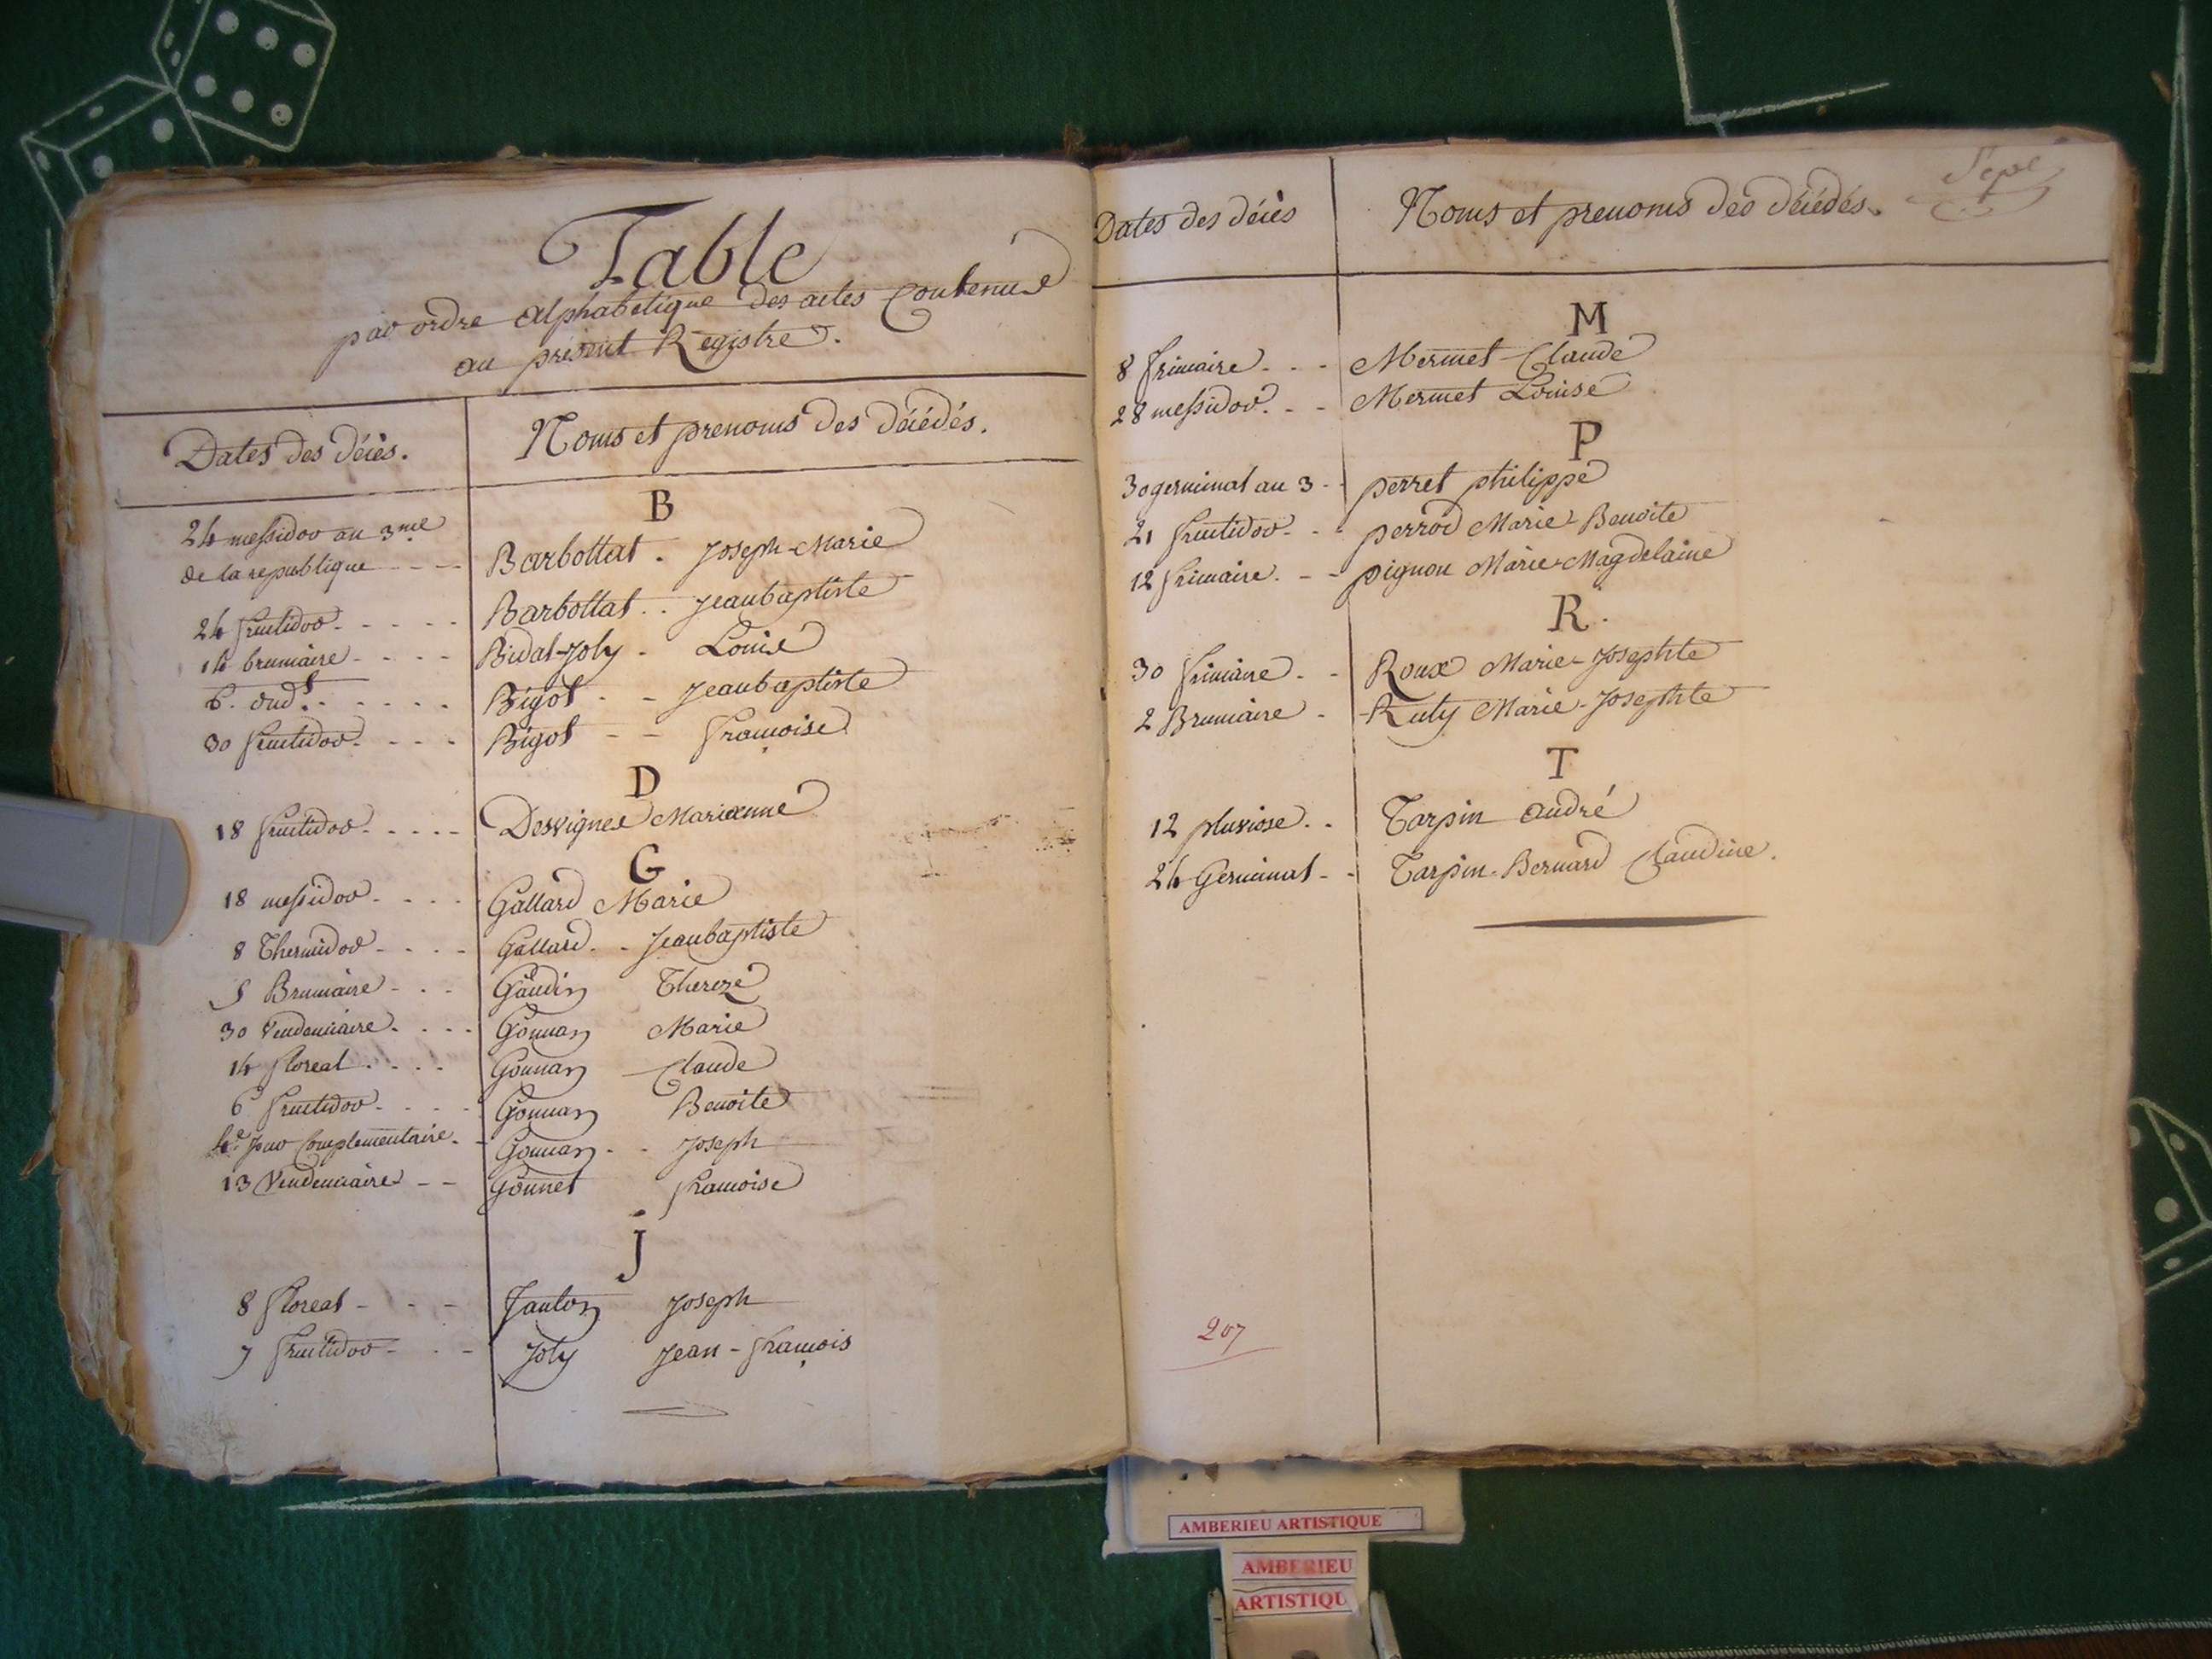 Table
par ordre alphabetique des actes Contenus
au présent Registre.
Dates des décès. Noms et prenoms des décédés.
B
24 messidor an 3.me
de la republique - - - Barbottat . Joseph-Marie
24 fructidor - - - - - Barbottat . . Jeanbaptiste
14 brumaire - - - - Bidat-Joly - Louise
6. dud.t - - - - - - Bigot - - Jeanbaptiste
30 fructidor - - - - Bigot - - françoise
D
18 fructidor - - - - - Desvignes Marianne
G
18 messidor - - - - Gallard Marie
8 Thermidor - - - - Gallard - - Jeanbaptiste
5 Brumaire - - - Gaudin Thereze
30 Vendemiaire - - - - Gonnan Marie
14 floreal - - - - Gonnan Claude
6 fructidor - - - - Gonnan Benoite
4.e Jour Complementaire - - Gonnan - - Joseph
13 Vendemiaire - - Gonnet francoise
J
8 floreal - - - Janton Joseph
7 fructidor - - - Joly Jean-françois
Dates des décès Noms et prenoms des décédés.
M
8 frimaire - - - Mermet Claude
28 messidor - - Mermet Louise
P
30 germinal an 3 - - perret philippe
21 fructidor - - - perrod Marie Benoite
12 frimaire - - - pignon Marie-Magdelaine
R.
30 frimaire - - Roux Marie-Josephte
2 Brumaire - Ruty Marie-Josephte
T
12 pluviose - - Tarpin andré
24 Germinal - - Tarpin-Bernard Claudine.
207
AMBERIEU ARTISTIQUE
AMBERIEU
ARTISTIQU